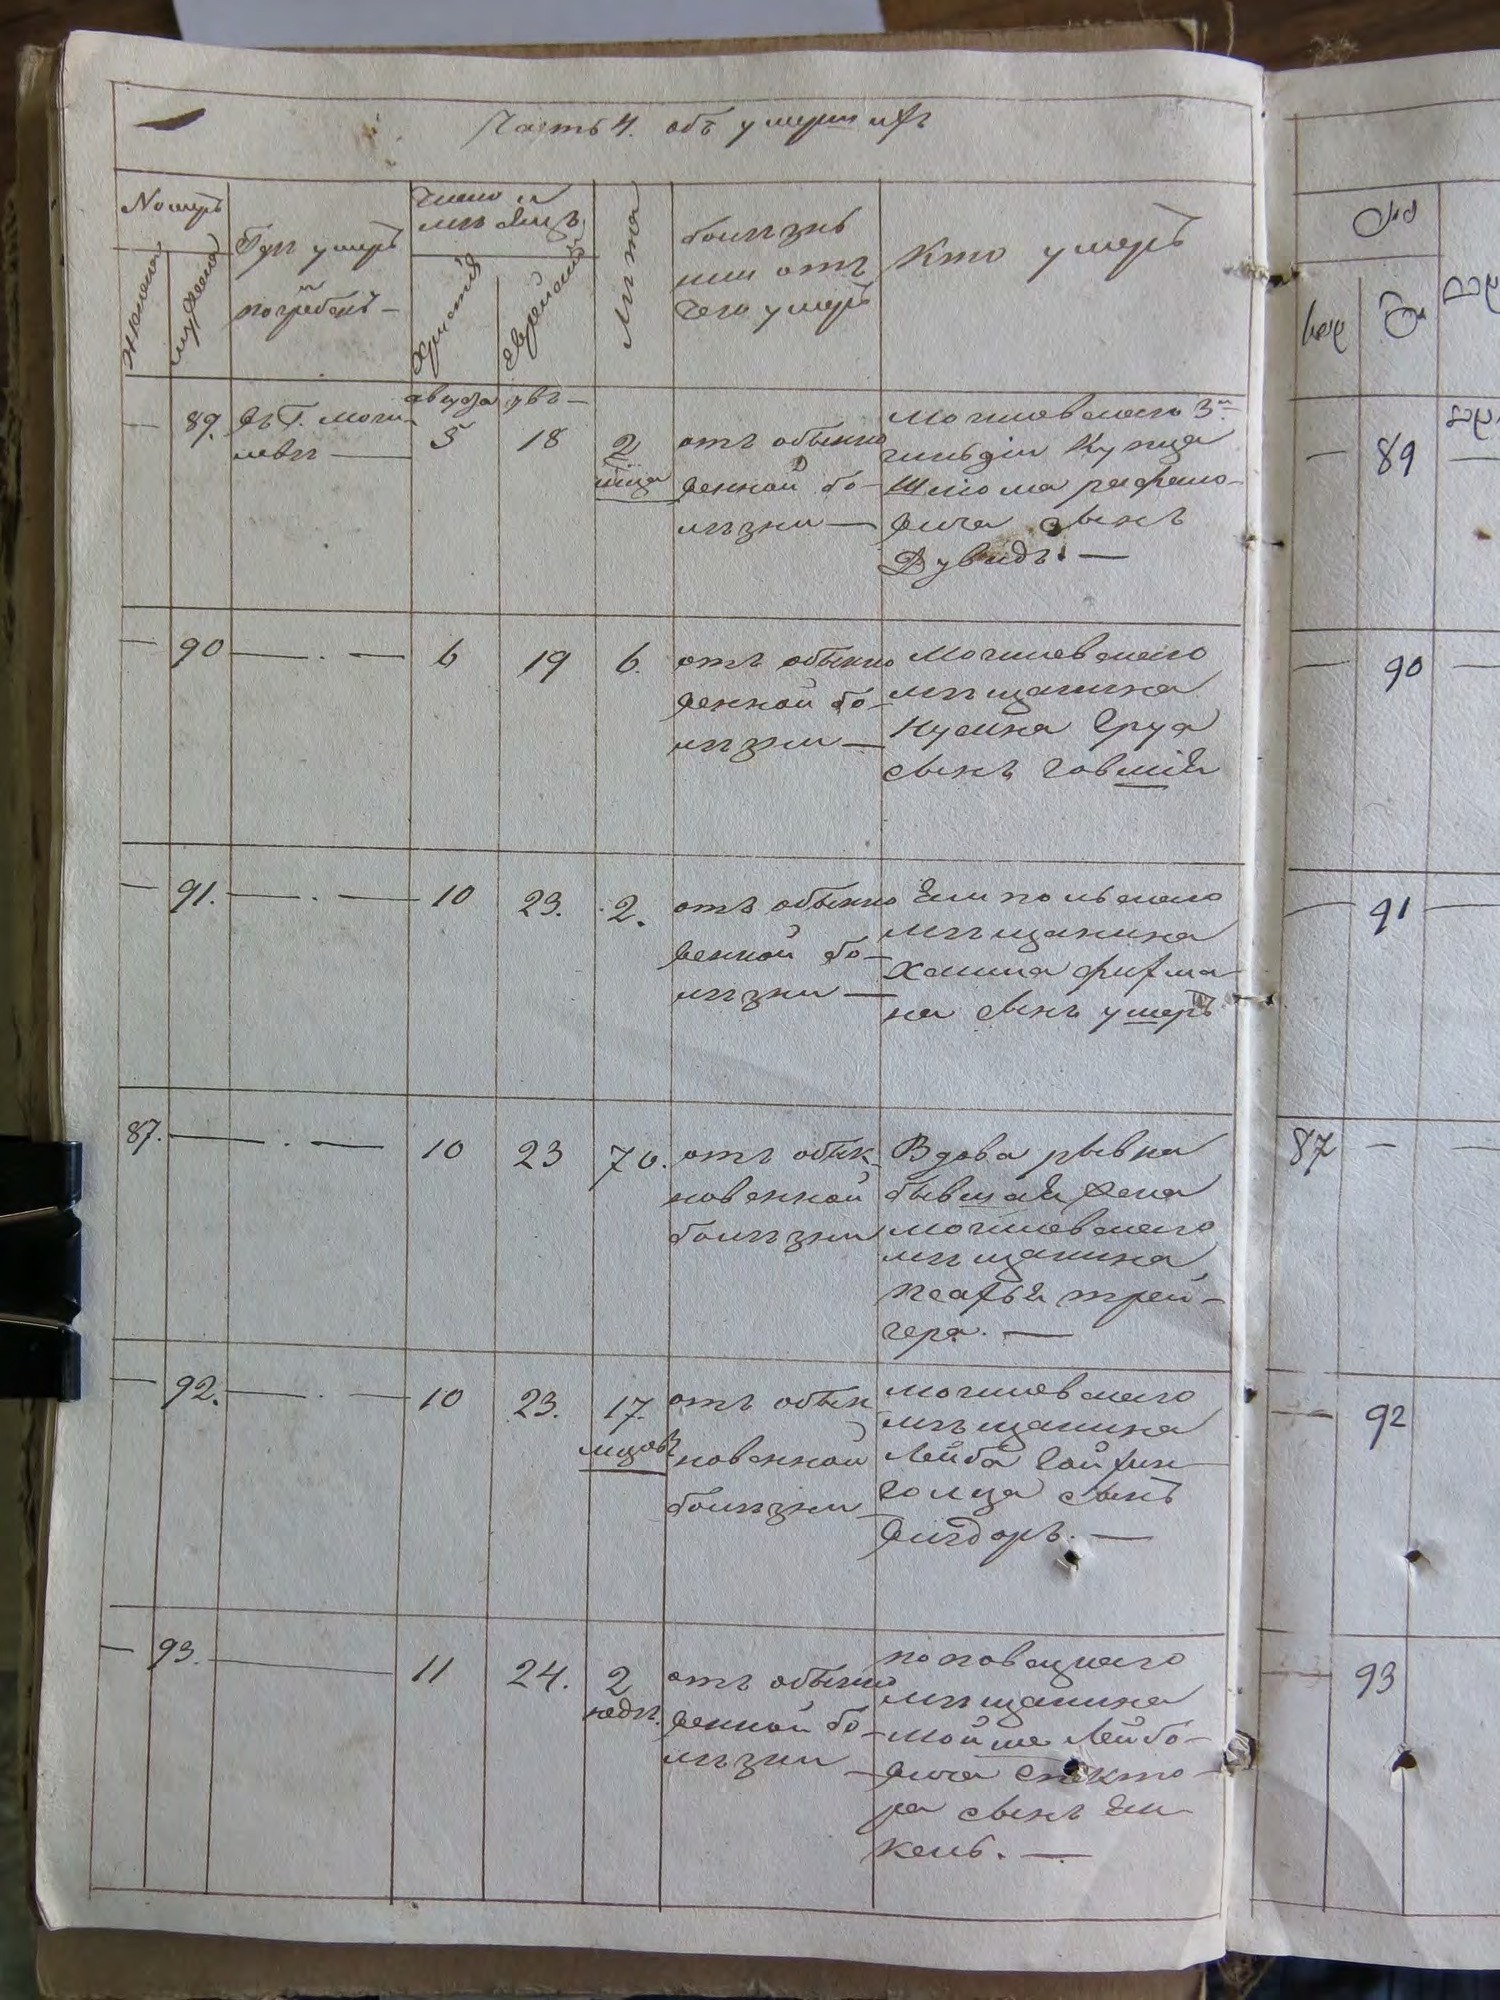 Часть 4. объ умершихъ
Номеръ
женска
мужеска
Гдѣ умеръ
и
погребенъ —
Число и
мѣсяцъ
Христіа
Еврейской
Лѣта
болѣзнь
или отъ
чего умеръ
Кто умеръ
— 89. въ Г. Моги-
левѣ —
августа
5
увъ —
18
2
мца
отъ обыкно
венной бо-
лѣзни —
Могилевскаго 3й
гильдіи купца
Шлюма рафало-
вича сынъ
Дувидъ. —
— 90 — . — 6 19 6.
отъ обыкно
венной бо-
лѣзни —
Могилевскаго
мѣщанина
Нусина
сынъ
— 91. — . — 10 23. 2.
отъ обыкно
венной бо-
лѣзни —
Ямпольскаго
мѣщанина
Хаима фихма-
на сынъ умеръ
87. — . — 10 23 70.
отъ обык-
новенной
болѣзни
Вдова рывка
бывшая жена
могилевскаго
мѣщанина
трей-
гера. —
— 92. — . — 10 23. 17.
мцовъ
отъ обык
новенной
болѣзни —
могилевскаго
мѣщанина
Лейба Гойхин-
голца сынъ
Вигдоръ. —
— 93. — 11 24. 2
недѣ.
отъ обыкно
венной бо-
лѣзни —
мѣщанина
Мойше Лейбо-
вича Спекто-
ра сынъ Ян-
кель. —
— 89 —
— 90 —
— 91 —
87 — —
— 92
— 93